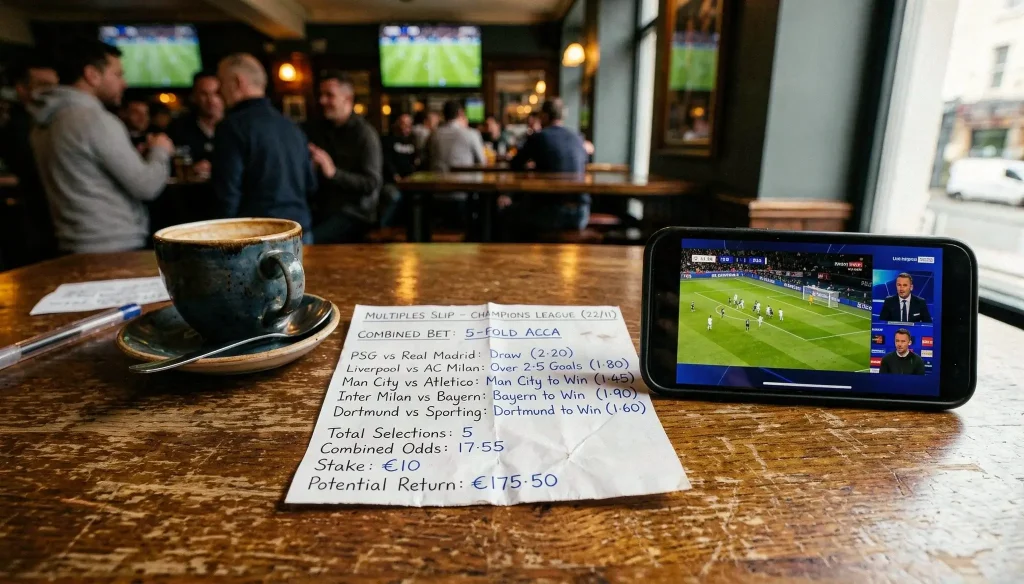 MULTIPLES SLIP - CHAMPIONS LEAGUE (22/11)
COMBINED BET: 5-FOLD ACCA
PSG vs Real Madrid: Draw (2·20)
Liverpool vs AC Milan: Over 2·5 Goals (1·80)
Man City vs Atletico: Man City to Win (1·45)
Inter Milan vs Bayern: Bayern to Win (1·90)
Dortmund vs Sporting: Dortmund to Win (1·60)
Total Selections: 5
Combined Odds: 17·55
Stake: €10
Potential Return: €175·50